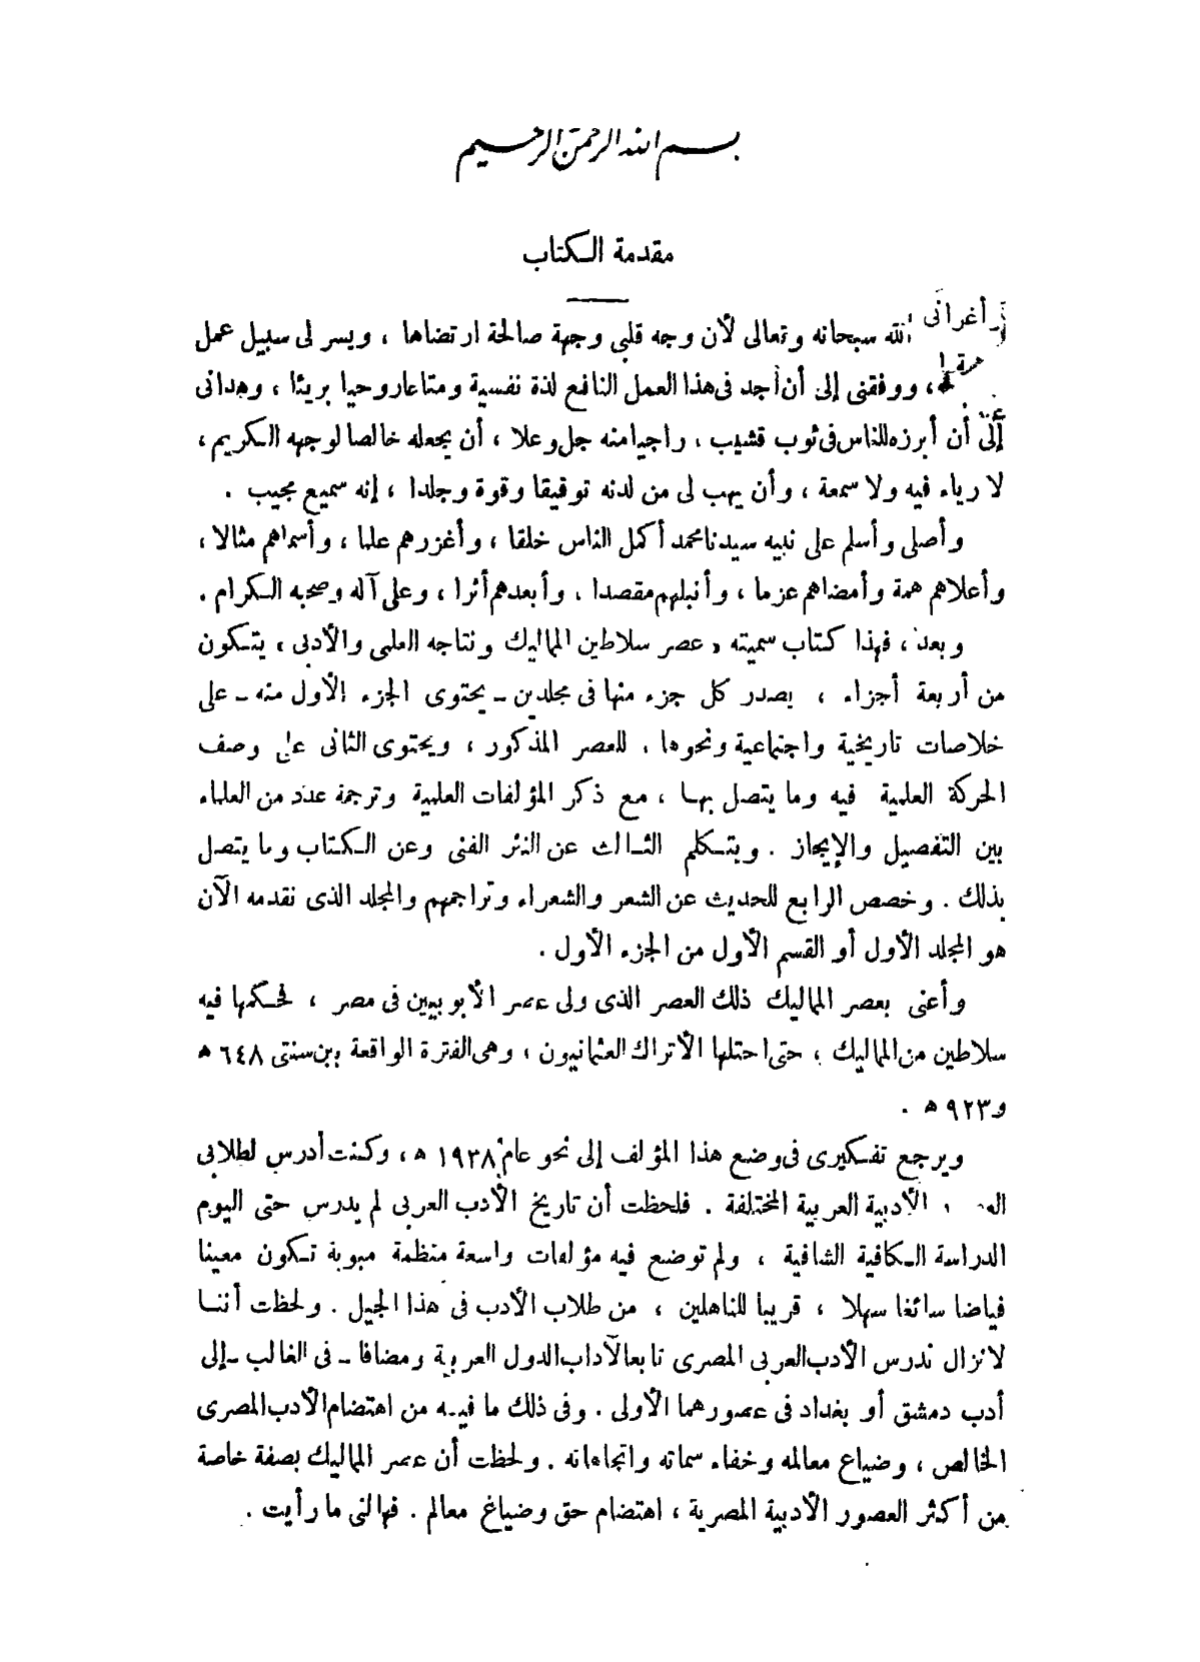 بسم الله الرحمن الرحيم
مقدمة الكتاب
أغرانى الله سبحانه وتعالى لأن وجه قلبى وجهة صالحة ارتضاها ، ويسر لى سبيل عمل
، ووفقنى إلى أن أجد فى هذا العمل النافع لذة نفسية ومتاعا روحيا بريئا ، وهدانى
إلى أن أبرزه للناس فى ثوب قشيب ، راجيا منه جل وعلا ، أن يجعله خالصا لوجهه الكريم ،
لا رياء فيه ولا سمعة ، وأن يهب لى من لدنه توفيقا وقوة وجلدا ، إنه سميع مجيب .
وأصلى وأسلم على نبيه سيدنا محمد أكمل الناس خلقا ، وأغزرهم علما ، وأسماهم مثالا ،
وأعلاهم همة وأمضاهم عزما ، وأنبلهم مقصدا ، وأبعدهم أثرا ، وعلى آله وصحبه الكرام .
وبعد ، فهذا كتاب سميته « عصر سلاطين المماليك ونتاجه العلمى والأدبى ، يتكون
من أربعة أجزاء ، يصدر كل جزء منها فى مجلدين ـ يحتوى الجزء الأول منه ـ على
خلاصات تاريخية واجتماعية ونحوها ، للعصر المذكور ، ويحتوى الثانى على وصف
الحركة العلمية فيه وما يتصل بها ، مع ذكر المؤلفات العلمية وترجمة عدد من العلماء
بين التفصيل والإيجاز . ويتكلم الثالث عن النثر الفنى وعن الكتاب وما يتصل
بذلك . وخصص الرابع للحديث عن الشعر والشعراء وتراجمهم والمجلد الذى نقدمه الآن
هو المجلد الأول أو القسم الأول من الجزء الأول .
وأعنى بعصر المماليك ذلك العصر الذى ولى عصر الأيوبيين فى مصر ، فحكمها فيه
سلاطين من المماليك ، حتى احتلها الأتراك العثمانيون ، وهى الفترة الواقعة بين سنتى ٦٤٨ ه
و٩٢٣ ه .
ويرجع تفكيرى فى وضع هذا المؤلف إلى نحو عام ١٩٣٨ ه ، وكنت أدرس لطلابى
الأدبية العربية المختلفة . فلحظت أن تاريخ الأدب العربى لم يدرس حتى اليوم
الدراسة الكافية الشافية ، ولم توضع فيه مؤلفات واسعة منظمة مبوبة تكون معينا
فياضا سائغا سهلا ، قريبا للناهلين ، من طلاب الأدب فى هذا الجيل . ولحظت أننا
لا نزال ندرس الأدب العربى المصرى تابعا لآداب الدول العربية ومضافا ـ فى الغالب ـ إلى
أدب دمشق أو بغداد فى عصورهما الأولى . وفى ذلك ما فيه من اهتضام الأدب المصرى
الخالص ، وضياع معالمه وخفاء سماته واتجاهاته . ولحظت أن عصر المماليك بصفة خاصة
من أكثر العصور الأدبية المصرية ، اهتضام حق وضياع معالم . فهالنى ما رأيت .